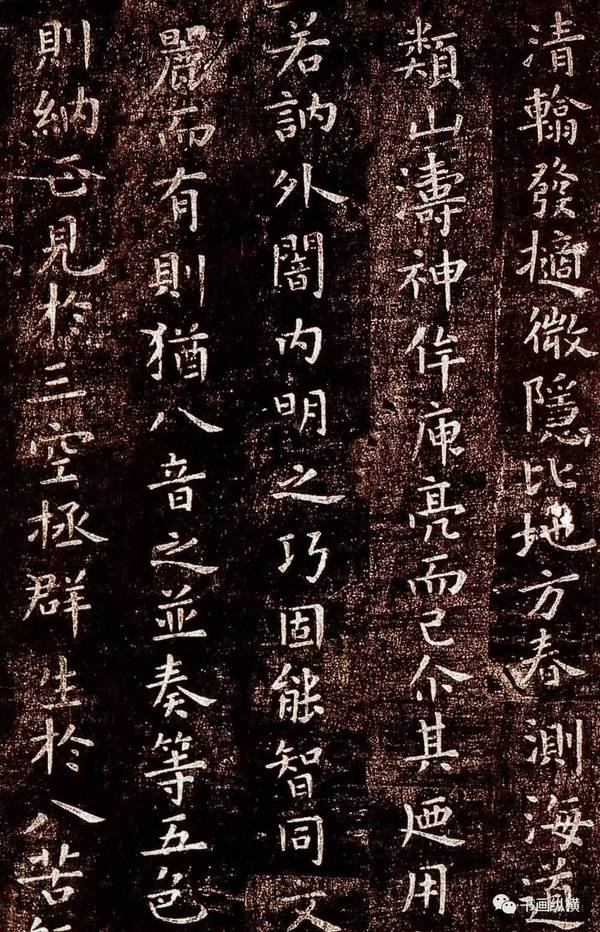 清翰發擿微隱比地方春測海道
類山濤神侔庾亮而已尒其迺用
若訥外闇內明之巧固能智同文
麗而有則猶八音之並奏等五色
則納正見於三空拯群生於八苦
书画纵横